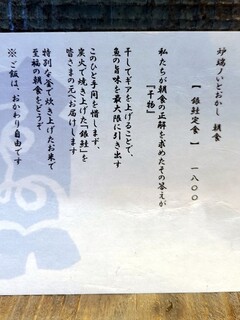 炉端ノいとおかし　朝食
【銀鮭定食】　一八〇〇
私たちが朝食の正解を求めたその答えが
『干物』
干してギアを上げることで、
魚の旨味を最大限に引き出す
このひと手間を惜しまず、
炭火で焼き上げた、「銀鮭」を
皆さまの元へお届けします
特別な釜で炊き上げたお米で
至福の朝食をどうぞ
※ご飯は、おかわり自由です